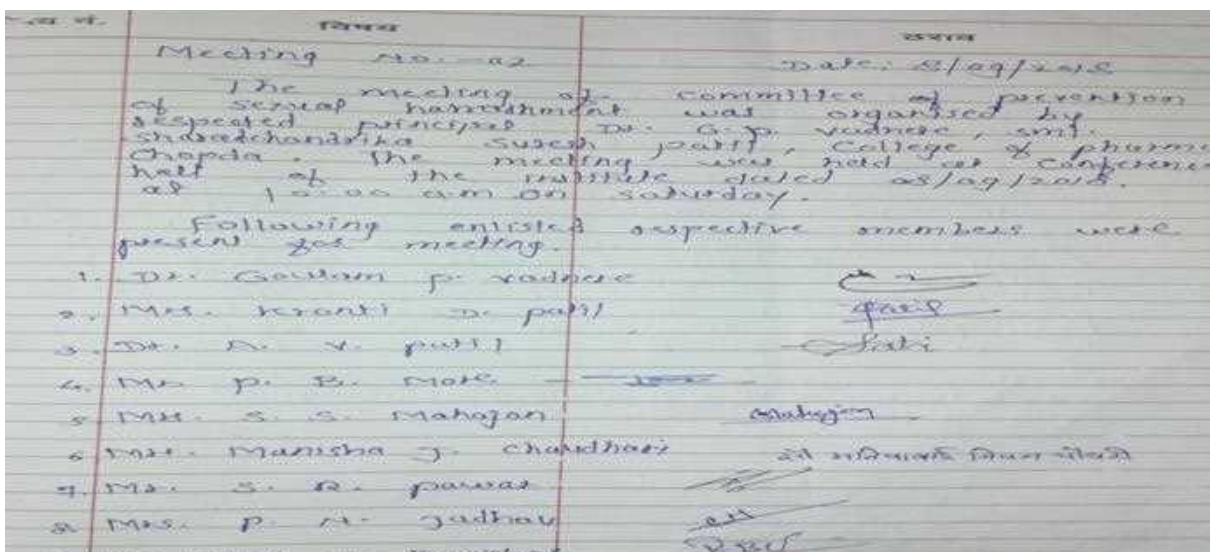 विषय ठराव
Meeting No. - 02 Date: 8/09/2018
The meeting of committee of prevention
of sexual harrashment was organised by
respected principal Dr. G. P. Vadnere, Smt.
Sharadchandrika Suresh Patil, College of pharma
Chopda. The meeting were held at Conference
hall of the institute dated 08/09/2018.
at 10:00 am on saturday.
Following enlisted respective members were
present for meeting.
1. Dr. Goutam p. vadnere
2. Mrs. Kranti D. patil patil
3. Dr. A. V. patil
4. Mr. P. B. More
5. Mrs. S. S. Mahajan Mahajan
6. Mrs. Manisha J. chaudhari सौ
7. Mr. S. R. pawar
8. Mrs. P. N. Jadhav